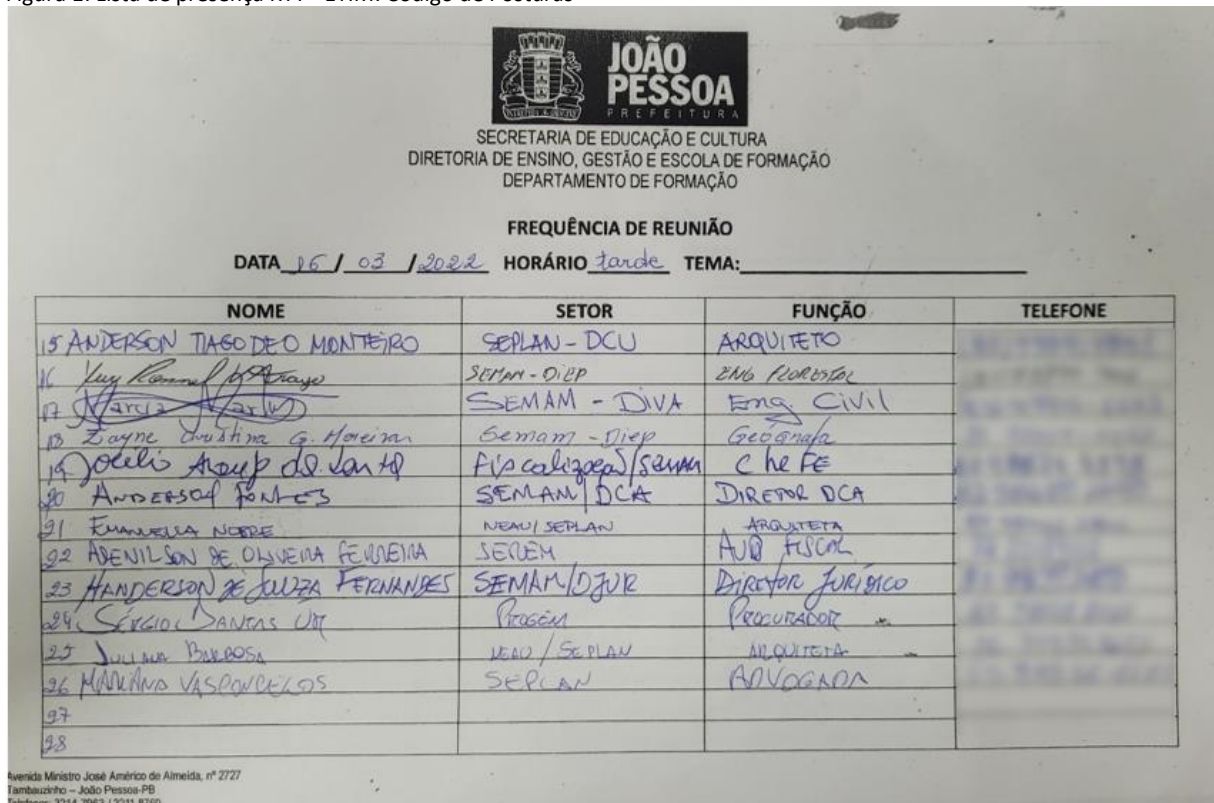 JOÃO
PESSOA
PREFEITURA
SECRETARIA DE EDUCAÇÃO E CULTURA
DIRETORIA DE ENSINO, GESTÃO E ESCOLA DE FORMAÇÃO
DEPARTAMENTO DE FORMAÇÃO
FREQUÊNCIA DE REUNIÃO
DATA 16 / 03 / 2022 HORÁRIO tarde TEMA:
NOME SETOR FUNÇÃO TELEFONE
15 ANDERSON TIAGO DE O MONTEIRO SEPLAN - DCU ARQUITETO
16 SEMAM - DIEP ENG FLORESTAL
17 SEMAM - DIVA Eng. Civil
18 Zayne Cristina G. Moreira Semam - Diep Geógrafa
19 Fiscalização/SEMAM CheFE
20 ANDERSON FONTES SEMAM/DCA DIRETOR DCA
21 EMANUELLA NOBRE NEAU/SEPLAN ARQUITETA
22 ADENILSON DE OLIVEIRA FERREIRA SEREM AUD FISCAL
23 HANDERSON DE SOUZA FERNANDES SEMAM/DJUR DIRETOR JURÍDICO
24 SÉRGIO DANTAS PROGEM PROCURADOR
25 JULIANA BARBOSA NEAU/SEPLAN ARQUITETA
26 VASCONCELOS SEPLAN ADVOGADA
27
28
Avenida Ministro José Américo de Almeida, nº 2727
Tambauzinho – João Pessoa-PB